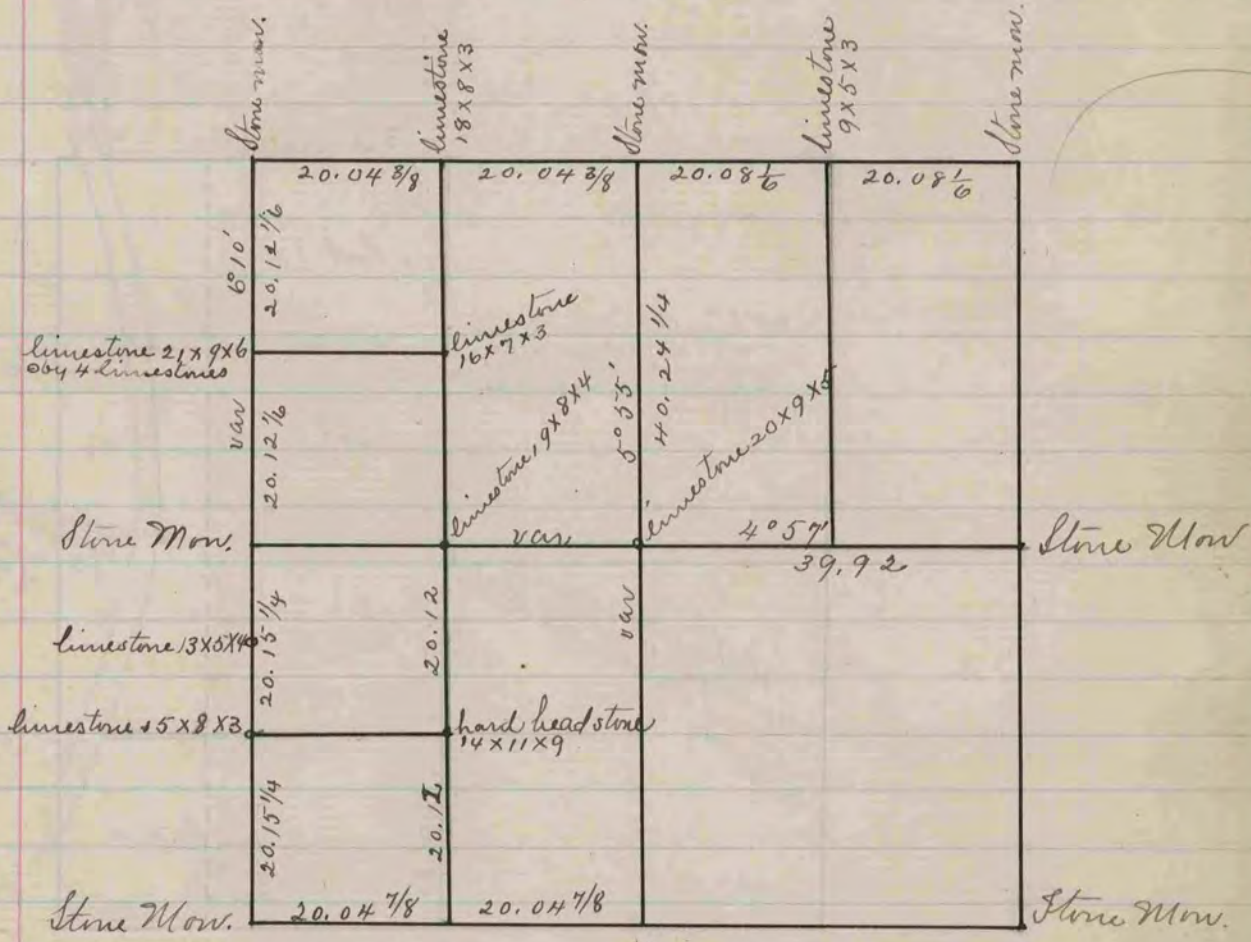 Stone mon.
limestone
18 X 8 X 3
Stone mon.
limestone
9 X 5 X 3
Stone mon.
20.04 3/8
20.04 3/8
20.08 1/6
20.08 1/6
6° 10'
20.12 1/6
limestone 21 X 9 X 6
by 4 limestones
limestone
16 X 7 X 3
var
20.12 1/6
limestone 19 X 8 X 4
5° 55'
40.24 1/4
limestone 20 X 9 X 5
Stone Mon.
var
4° 57'
Stone Mon
39.92
limestone 13 X 5 X 4
20.15 1/4
20.12
var
limestone 15 X 8 X 3
hard head stone
14 X 11 X 9
20.15 1/4
20.12
Stone Mon.
20.04 7/8
20.04 7/8
Stone Mon.